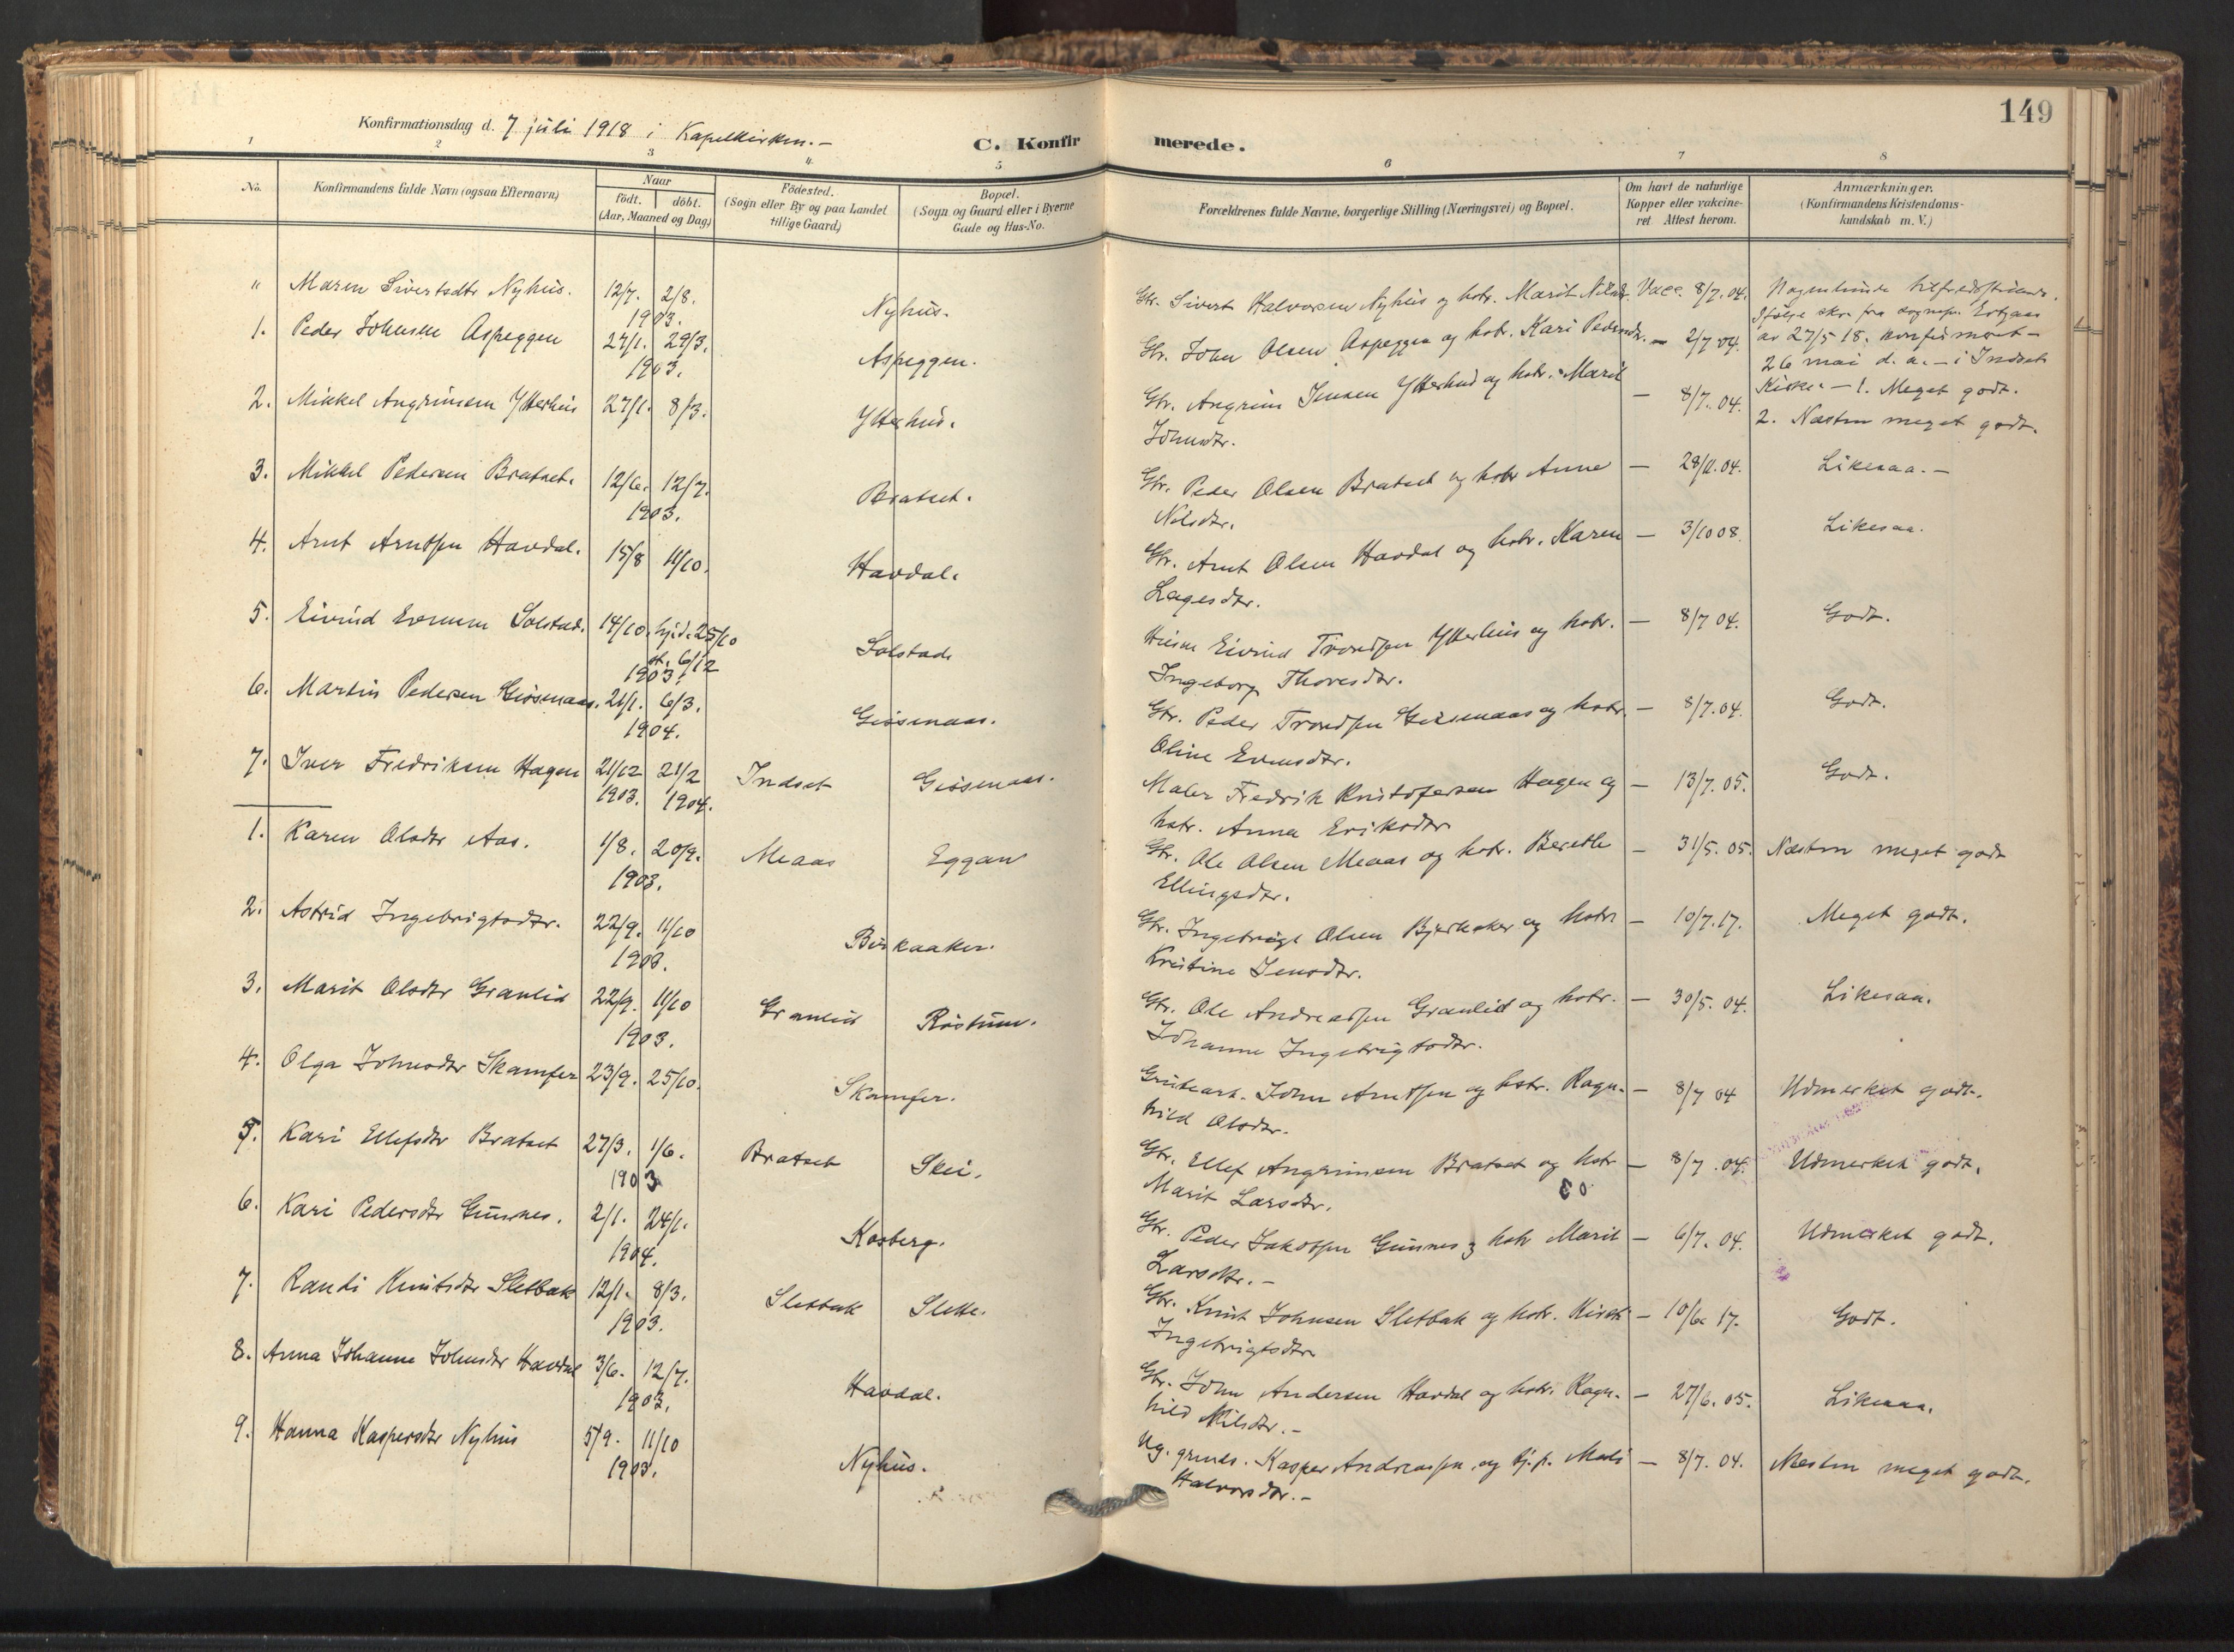 149
Konfirmationsdag d. 7 juli 1918 i Kapelkirken. –
C. Konfirmerede.
1 2 3 4 5 6 7 8
No.
Konfirmandens fulde Navn (ogsaa Efternavn)
Naar
født. døbt.
(Aar, Maaned og Dag)
Fødested.
(Sogn eller By og paa Landet
tillige Gaard)
Bopæl.
(Sogn og Gaard eller i Byerne
Gade og Hus-No.
Forældrenes fulde Navne, borgerlige Stilling (Næringsvei) og Bopæl.
Om havt de naturlige
Kopper eller vakcine-
ret Attest herom.
Anmærkninger.
(Konfirmandens Kristendoms-
kundskab m. V.)
" Maren Sivertsdtr Nyhus. 12/7. 2/8. 1903. Nyhus. Gbr. Sivert Halvorsen Nyhus og hstr. Marit Nilsdtr. Vacc. 8/7. 04. Nogenlunde tilfredsstillende.
Ifølge skr. fra sognepr.
av 27/5 18. konfirmeret –
26 mai d. a. – i Indset
Kirke. – 1. Meget godt.
1. Peder Johnsen Aspeggen 27/1. 29/3. 1903. Aspeggen. Gbr. John Olsen Aspeggen og hstr. Kari Pedersdtr. – 2/7 04.
2. Mikkel Angrimsen Ytterhus 27/1. 8/3. Ytterhus. Gbr. Angrim Jensen Ytterhus og hstr. Marit
Johnsdtr. – 8/7. 04. 2. Næsten meget godt.
3. Mikkel Pedersen Bratset. 12/6. 12/7. 1903. Bratset. Gbr. Peder Olsen Bratset og hstr Anne
Nilsdtr. – 28/11.04. Likesaa. –
4. Arnt Arntsen Havdal. 15/8 11/10. Havdal. Gbr. Arnt Olsen Havdal og hstr. Karen
Lagesdtr. – 3/10 08. Likesaa.
5. Eivind Solstad. 14/10. hjd. 25/10 st. 6/12 1903. Solstad. Husm. Eivind Trondsen Ytterhus og hstr.
Ingeborg Thoresdtr. – 8/7 04. Godt.
6. Martin Pedersen Gissmaas. 21/1. 6/3. 1904. Gissmaas. Gbr. Peder Trondsen Gissmaas og hstr.
Oline Evensdtr. – 8/7.04. Godt.
7. Iver Fredriksen Hagen 21/12 1903. 21/2 1904. Indset Gissmaas. Maler Fredrik Kristofersen Hagen og
hstr. Anna Eriksdtr – 13/7. 05. Godt.
1. Karen Olsdtr Aas. 1/8. 20/9. 1903. Meaas Eggan Gbr. Ole Olsen Meaas og hstr. Berethe
Ellingsdtr. – 31/5. 05. Næsten meget godt
2. Astrid Ingebrigtsdtr. 22/9. 11/10 1903. Birkaaker. Gbr. Ingebrigt Olsen Bjerkaker og hstr
Kristine Jensdtr. – 10/7.17. Meget godt.
3. Marit Olsdtr Granlid 22/9. 11/10 1903. Granlid Røstum. Gbr. Ole Andreassen Granlid og hstr.
Johanne Ingebrigtsdtr. – 30/5. 04. Likesaa.
4. Olga Johnsdtr Skamfer 23/9. 25/10. Skamfer. Grubearb. John Arntsen og hstr. Ragn-
hild Olsdtr. – 8/7 04 Udmerket godt.
5. Kari Ellefsdtr Bratset 27/3. 1/6. 1903 Bratset Skei. Gbr. Ellef Angrimsen Bratset og hstr
Marit Larsdtr. – 8/7. 04. Udmerket godt.
6. Kari Pedersdtr Gunnes. 2/1. 24/1. 1904. Kosberg. Gbr. Peder Jakobsen Gunnes og hstr Marit
Larsdtr. – – 6/7. 04. Udmerket godt.
7. Randi Knutsdtr Sletbak 12/1. 8/3. 1903. Sletbak Slette. Gbr. Knut Johnsen Sletbak og hstr. Kirsti
Ingebrigtsdtr – 10/6. 17. Godt.
8. Anna Johanne Johnsdtr Havdal 3/6. 12/7. 1903. Havdal. Gbr. John Andersen Havdal og hstr. Ragn-
hild Nilsdtr. – – 27/6. 05. Likesaa.
9. Hanna Kaspersdtr Nyhus 5/9. 11/10 1903. Nyhus. Ug. grubearb. Kasper Andreassen og tj. p. Marit
Halvorsdtr. – – 8/7. 04. Næsten meget godt.